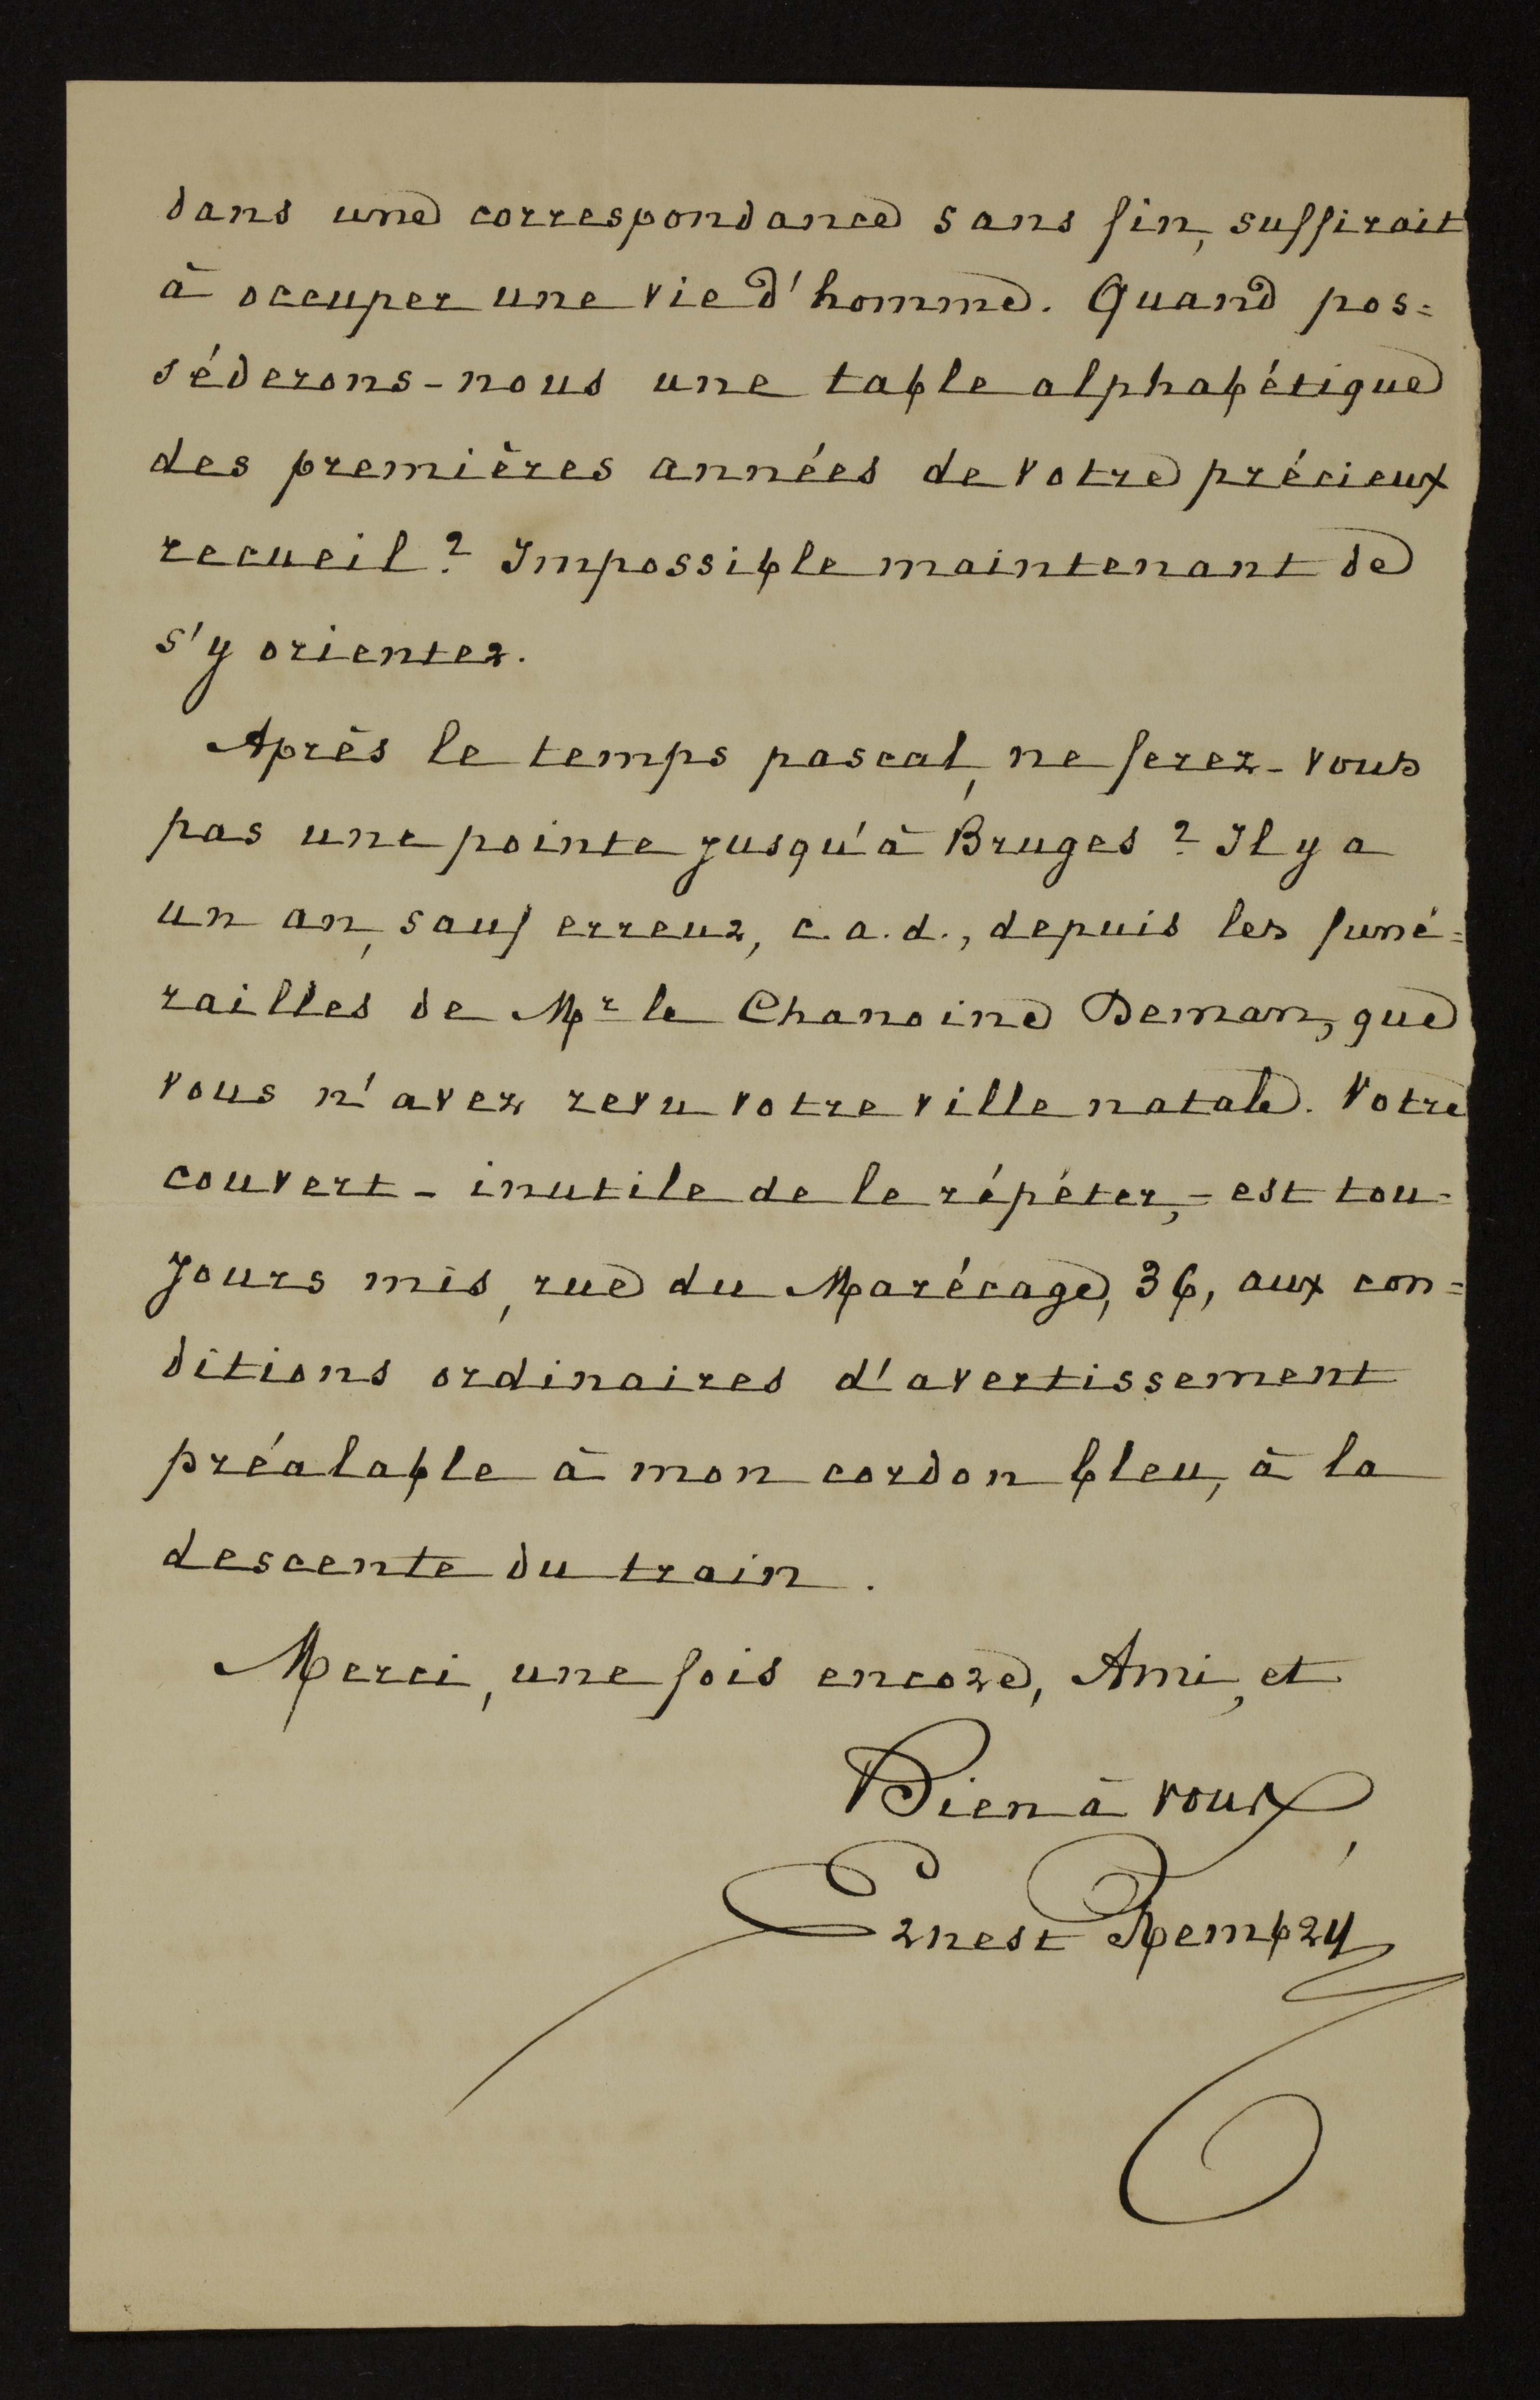 dans une correspondance sans fin, suffirait
à occuper une vie d'homme. Quand pos=
séderons-nous une table alphabétique
des premières années de votre précieux
recueil? Impossible maintenant de
s'y orienter.
Après le temps pascal, ne ferez-vous
pas une pointe jusqu'à Bruges? Il y a
un an, sauf erreur, c.a.d., depuis les funé=
railles de Mr le Chanoine Deman, que
vous n'avez revu votre ville natale. Votre
couvert - inutile de le répéter, - est tou-
jours mis, rue du Marécage, 36, aux con=
ditions ordinaires d'avertissement
préalable à mon cordon bleu, à la
descente du train.
Merci, une fois encore, Ami, et
Bien à vous,
Ernest Rembry